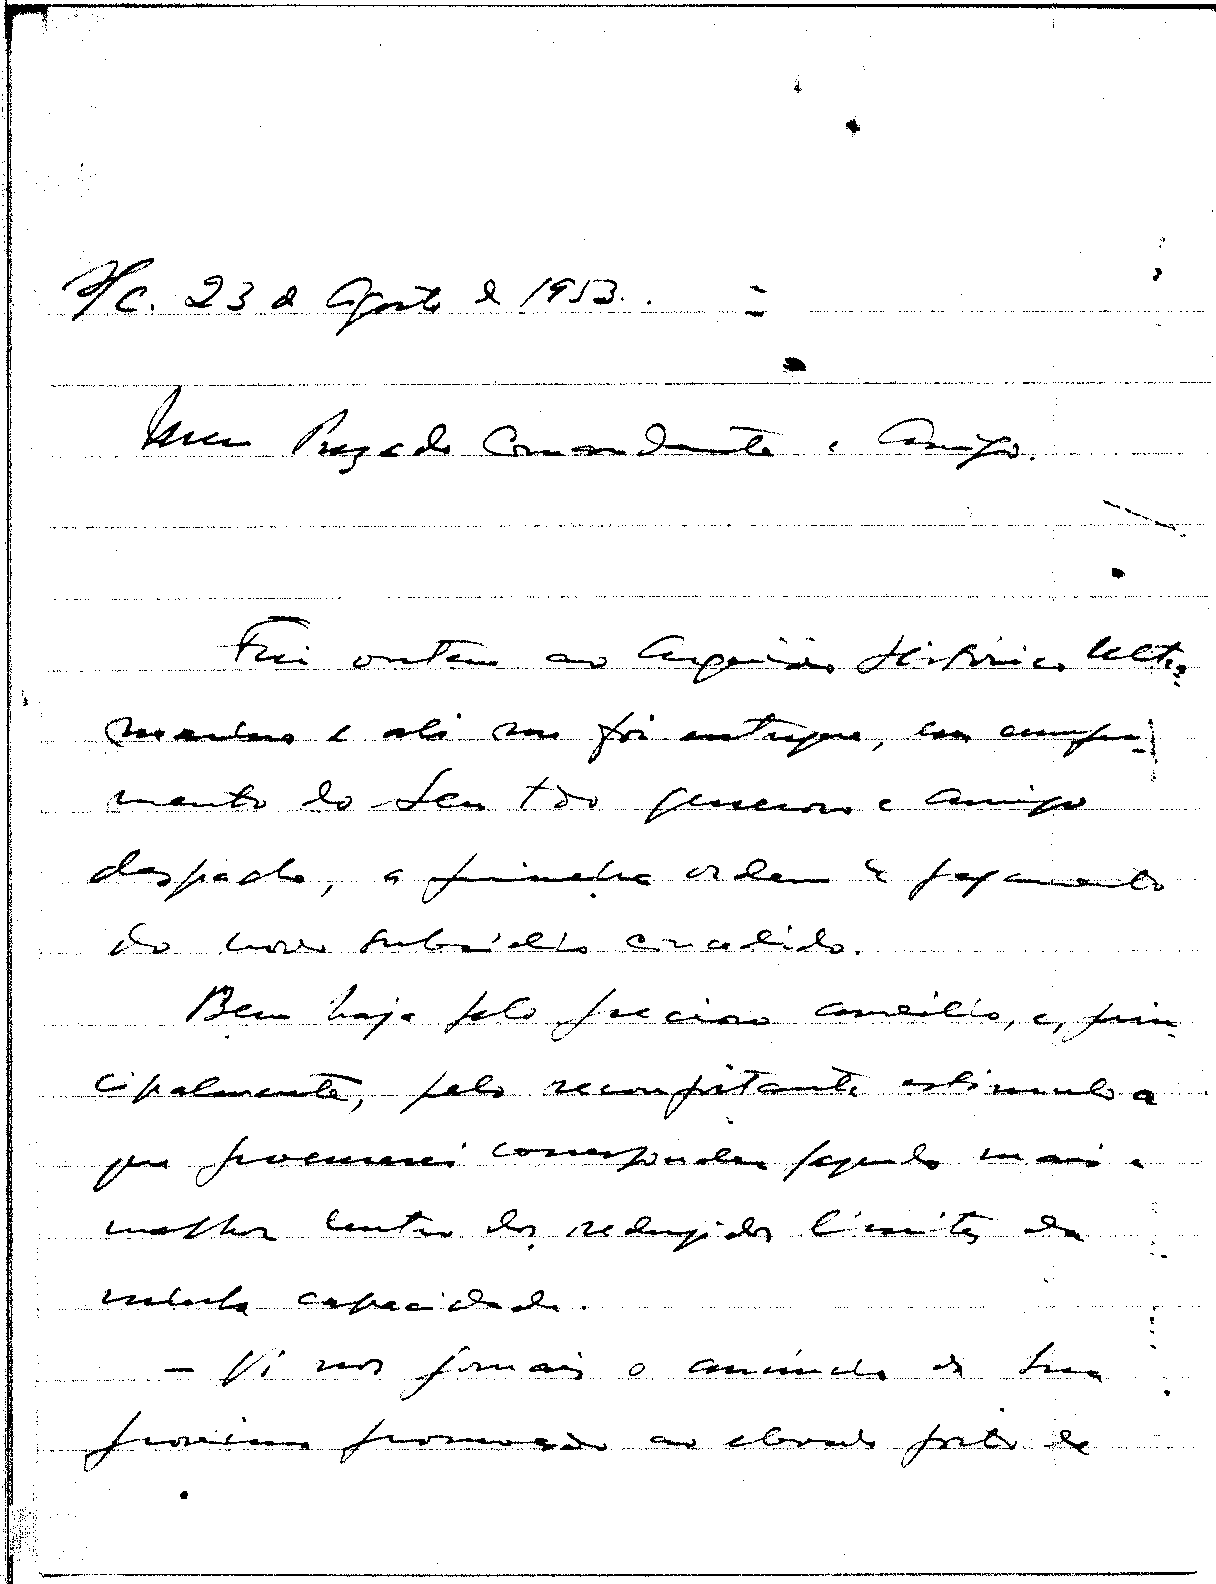 S/C. 23 de Agosto de 1953.
Meu Prezado Comandante e Amigo.
Fui ontem ao Arquivo Histórico Ultra-
marino e ali me foi entregue, em cumpri-
mento do Seu tão generoso e amigo
despacho, a primeira ordem de pagamento
do novo subsídio concedido.
Bem haja pelo precioso auxílio, e, prin-
cipalmente, pelo reconfortante estímulo a
que procurarei corresponder fazendo mais e
melhor dentro dos reduzidos limites da
minha capacidade.
- Vi nos jornais o anúncio da Sua
próxima promoção ao elevado posto de